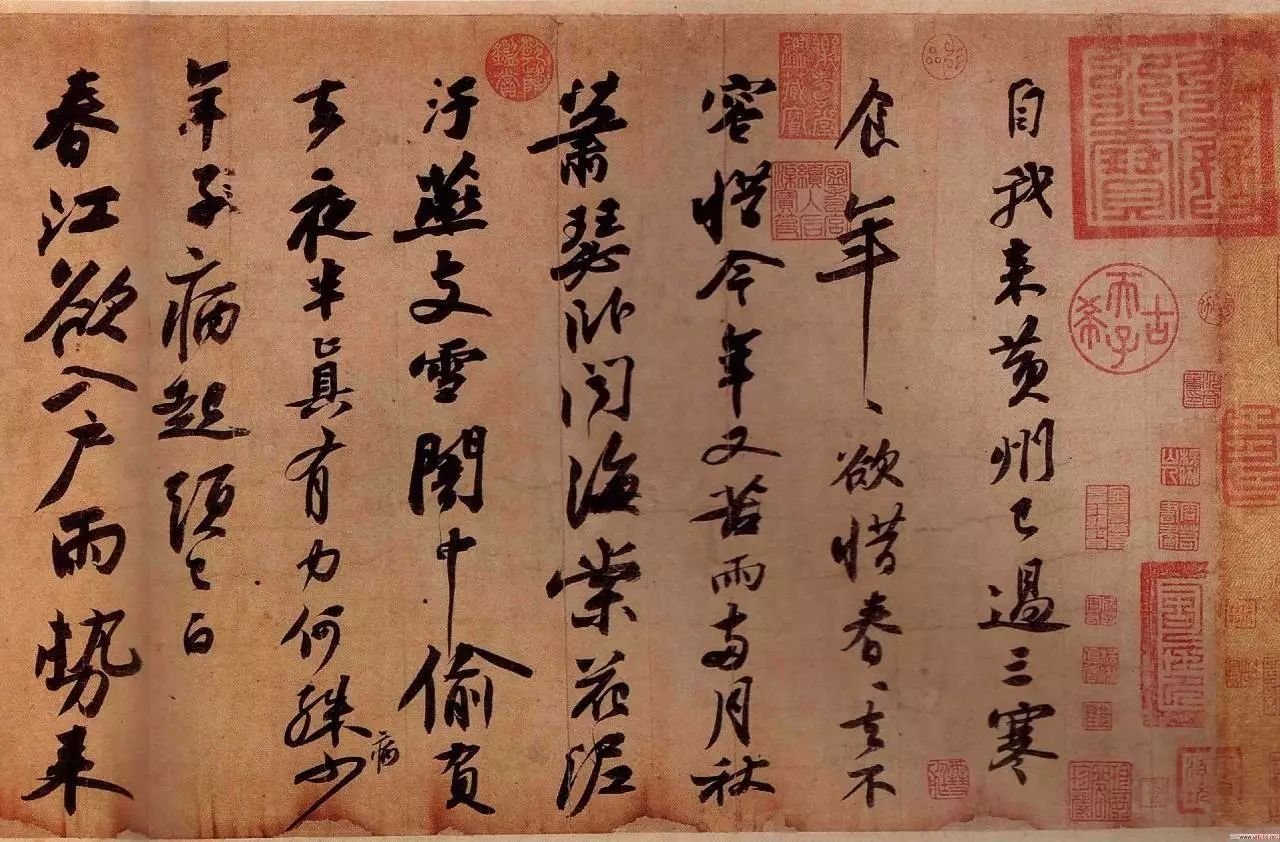 自我来黄州已過三寒
食年〻欲惜春〻去不
容惜今年又苦雨两月秋
蕭瑟卧聞海棠花泥
汙燕支雪闇中偷負
去夜半真有力何殊病少
年子病起頭已白
春江欲入户雨勢来
古希天子